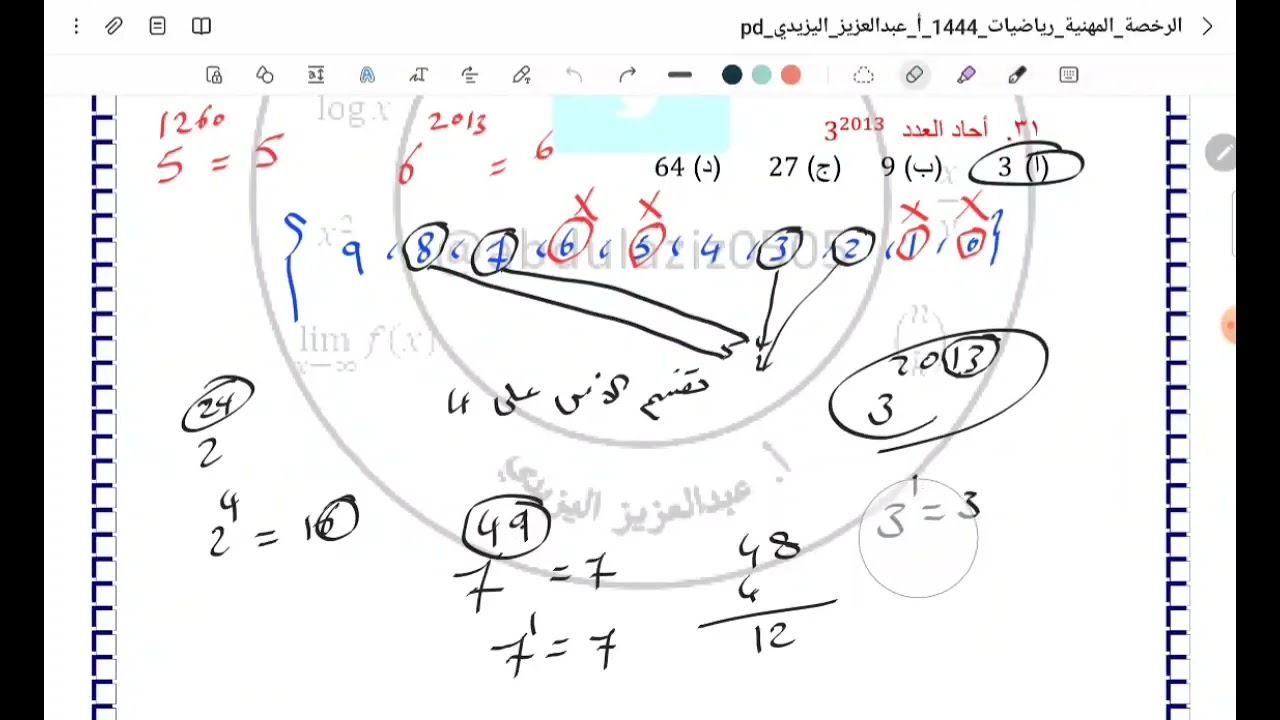 الرخصة_المهنية_رياضيات_1444_أ_عبدالعزيز_اليزيدي_pd
log x
٣١. آحاد العدد 3^2013
(أ) 3 (ب) 9 (ج) 27 (د) 64
5^1260 = 5
6^2013 = 6
{ 9 , 8 , 7 , 6 , 5 , 4 , 3 , 2 , 1 , 0 }
x x x x
@abdulaziz0505
lim f(x)
x→∞
نقسم الأس على 4
3^2013
2^24
2^4 = 16
أ. عبدالعزيز اليزيدي
7^49 = 7
7^1 = 7
48
4
12
3^1 = 3